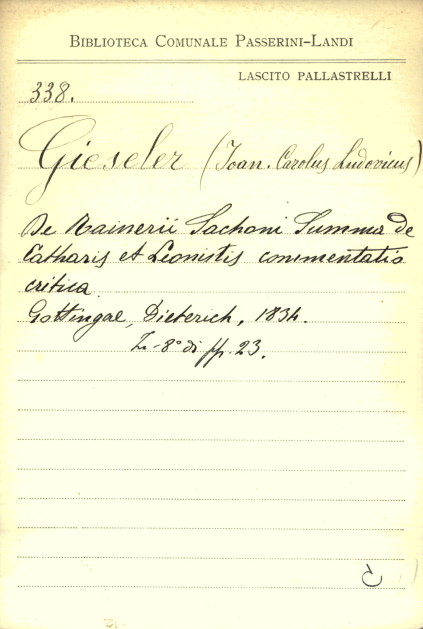 BIBLIOTECA COMUNALE PASSERINI-LANDI
LASCITO PALLASTRELLI
338.
Gieseler (Ioan. Carolus Ludovicus)
De Rainerii Sachoni Summa de
Catharis et Leonistis commentatio
critica
Gottingae, Dieterich, 1834.
In-8° di pp. 23.